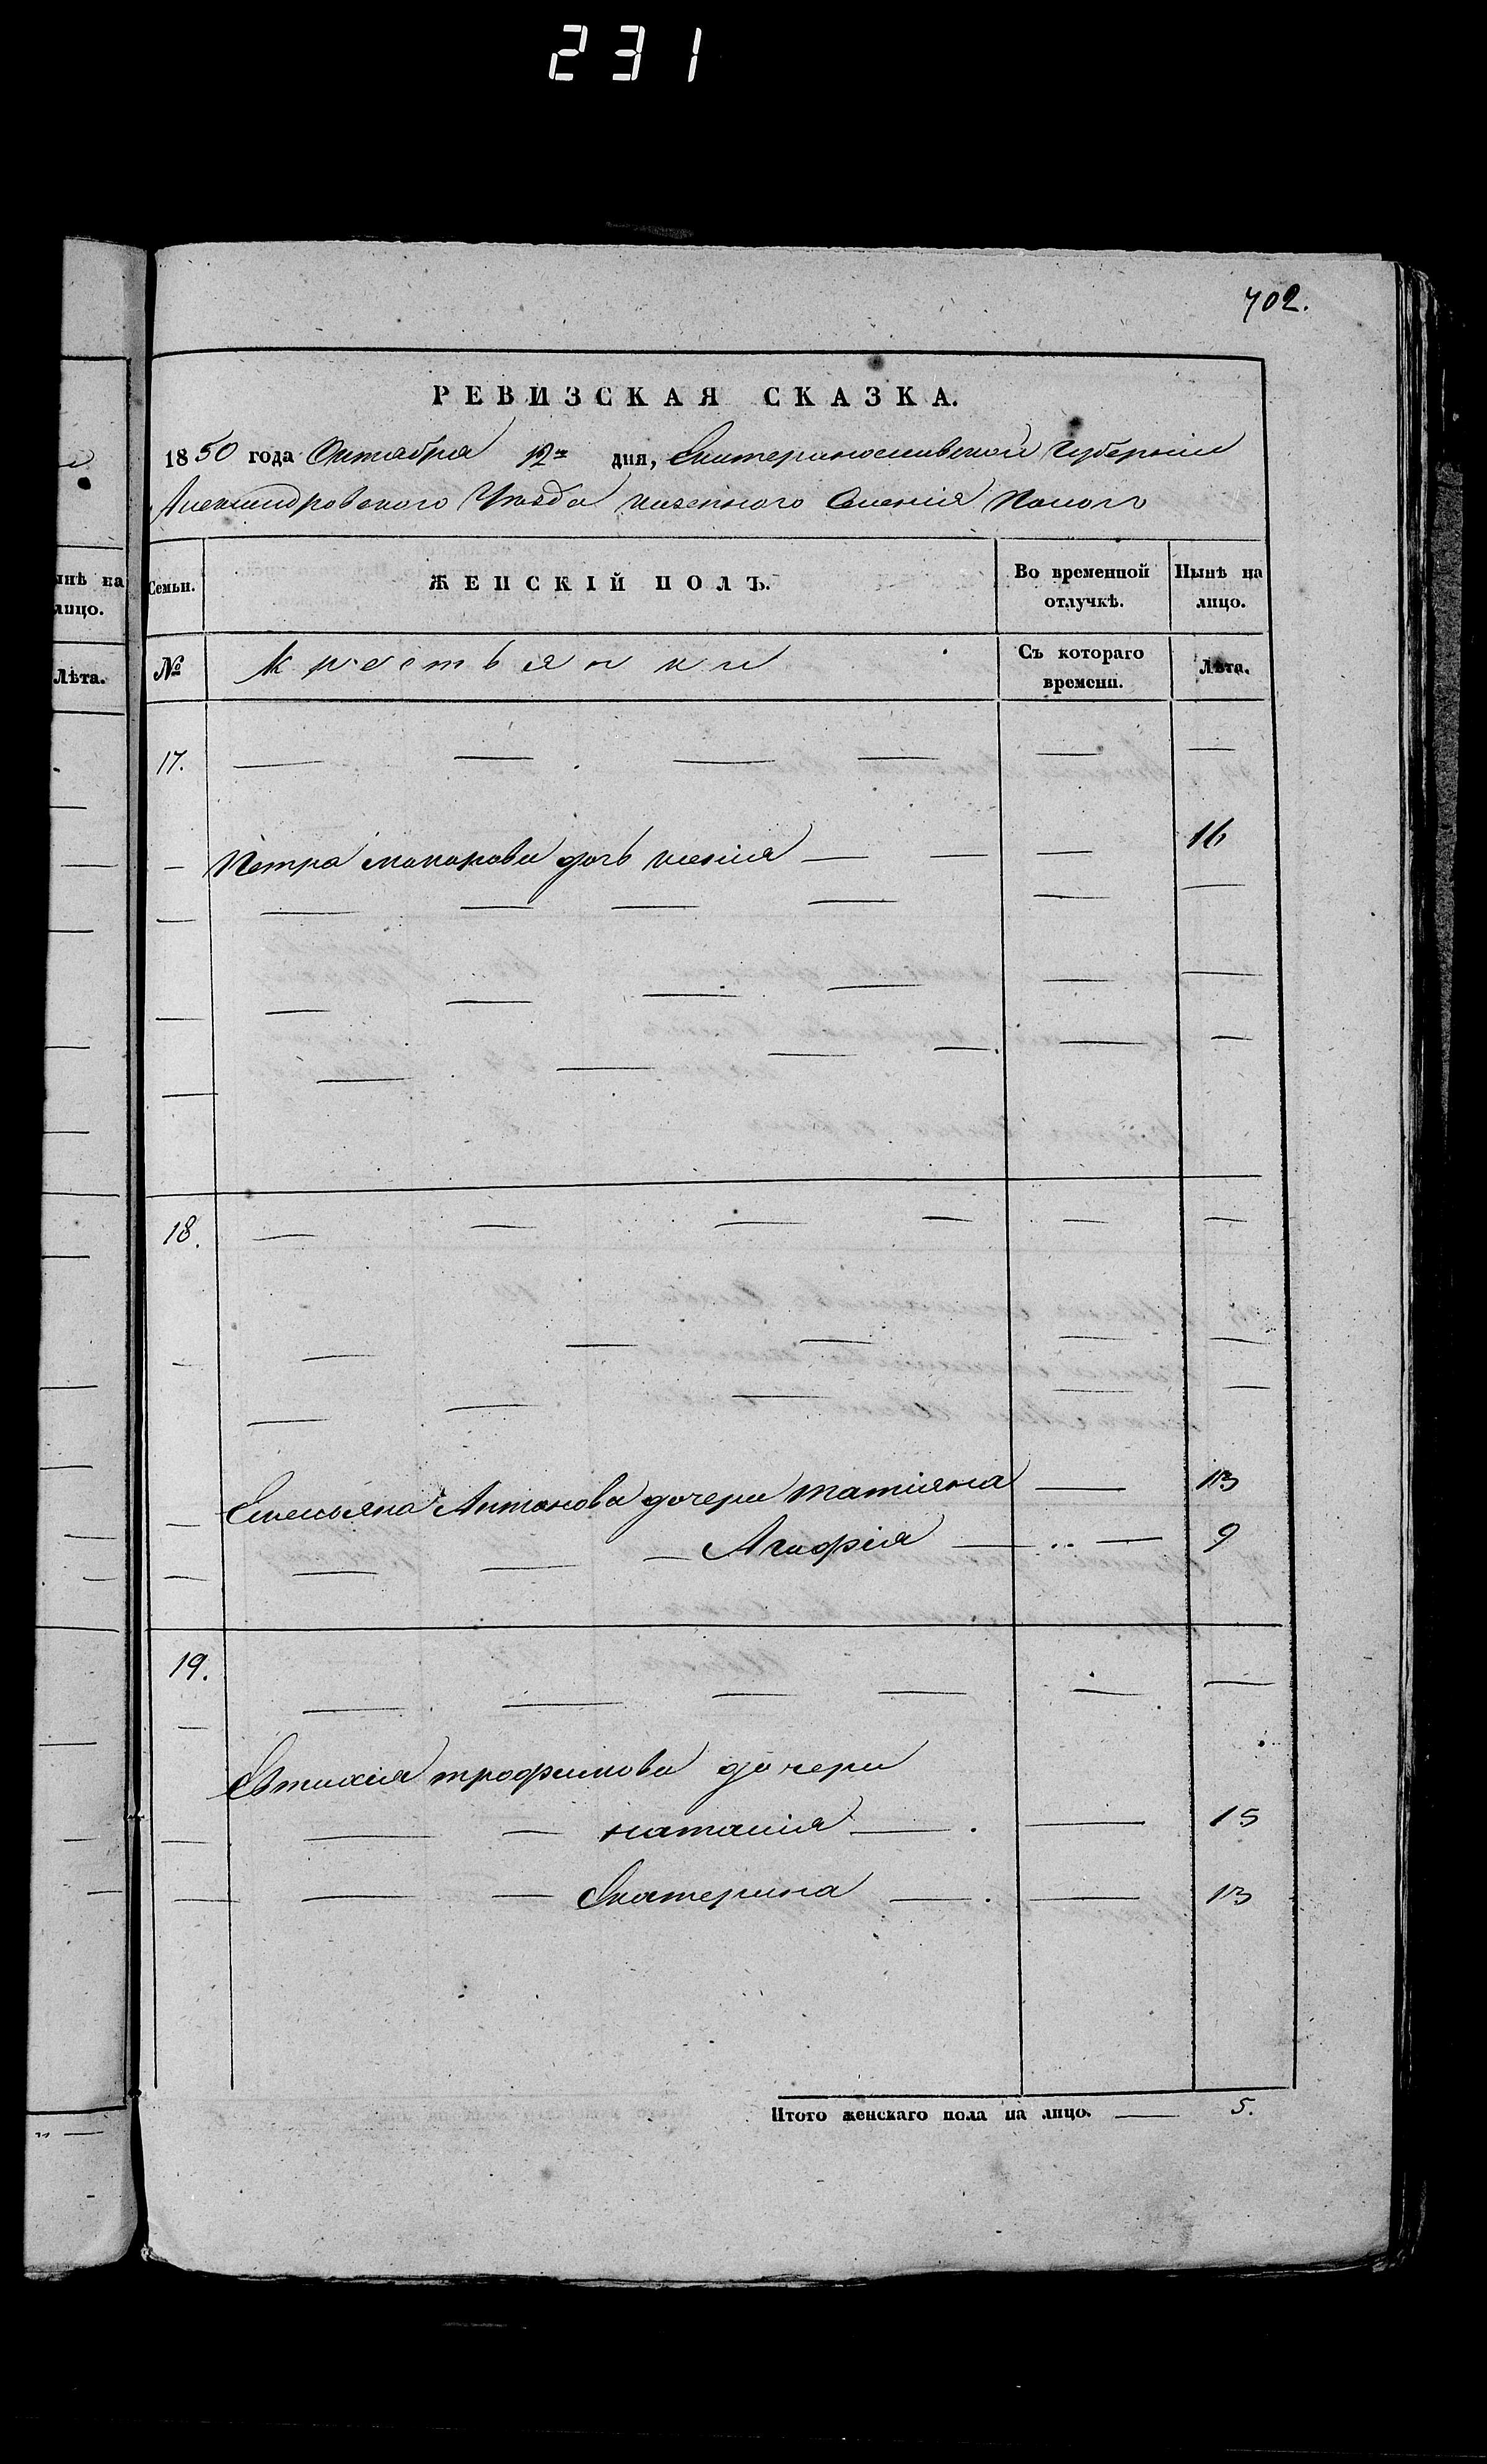 231
702.
РЕВИЗСКАЯ СКАЗКА.
1850 года Октабра 12го дня, Екатеринославской Губерніи
Александровского Уезда казенного Селенія Пологъ
нѣ на
лицо.
Лѣта.
Семьи. ЖЕНСКІЙ ПОЛЪ. Во временной отлучкѣ. Нынѣ на лицо.
№ Крестьянки Съ котораго времени. Лѣта.
17. — — — — — —
— Петра Макарова дочь Ксенія — — — 16
18. — — — — — —
— Емельяна Антонова дочери татіяна — 13
— — — — Агафія — — 9
19. — — — — — —
Евтихія трофимова дочери
— — — наталія — — 15
— — — Екатерина — — 13
Итого женскаго пола на лицо. — 5.